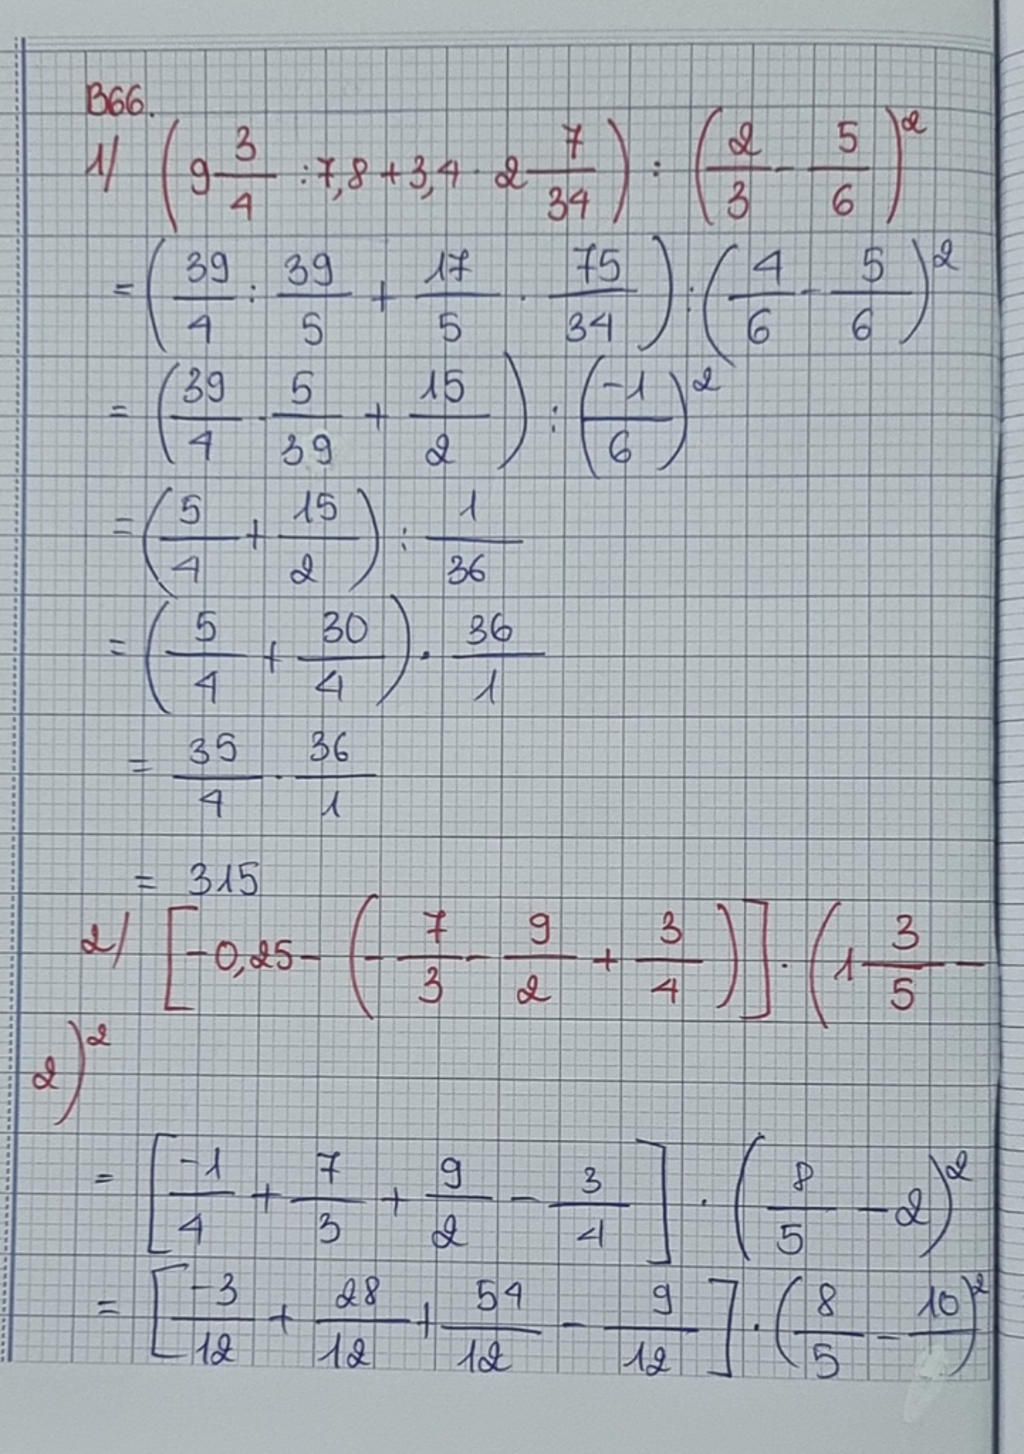 B66.
1/ (9 3/4 : 7,8 + 3,4 · 2 7/34) : (2/3 - 5/6)²
= (39/4 : 39/5 + 17/5 · 75/34) : (4/6 - 5/6)²
= (39/4 · 5/39 + 15/2) : (-1/6)²
= (5/4 + 15/2) : 1/36
= (5/4 + 30/4) · 36/1
= 35/4 · 36/1
= 315
2/ [-0,25 - (-7/3 - 9/2 + 3/4)] · (1 3/5 -
2)²
= [-1/4 + 7/3 + 9/2 - 3/4] · (8/5 - 2)²
= [-3/12 + 28/12 + 54/12 - 9/12] · (8/5 - 10/ )²